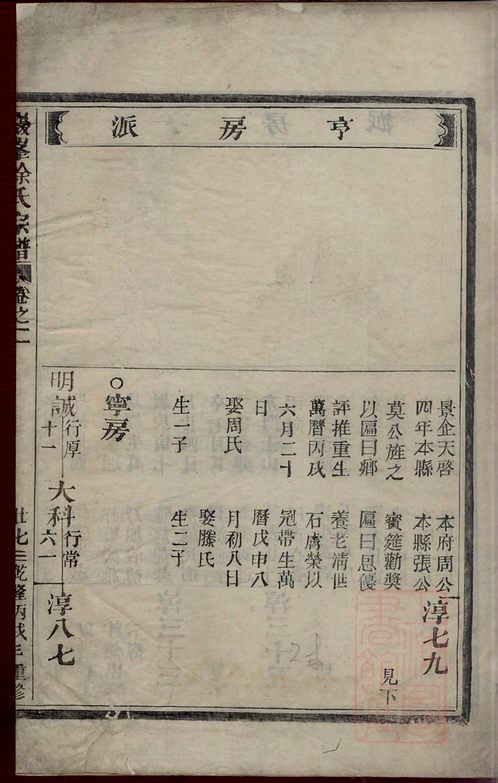 亨房派
景企天啓
四年本縣
莫公旌之
以匾曰鄉
評推重生
萬曆丙戌
六月二十
日
娶周氏
生一子
本府周公
本縣張公
賓筵勸獎
匾曰恩優
養老清世
石膺榮以
冠帶生萬
曆戊申八
月初八日
娶滕氏
生二子
淳七九
見下
○寧房
明誠行原十一
大科行常六一
淳八七
徐氏宗譜
卷之二
世七三乾隆丙戌年重修